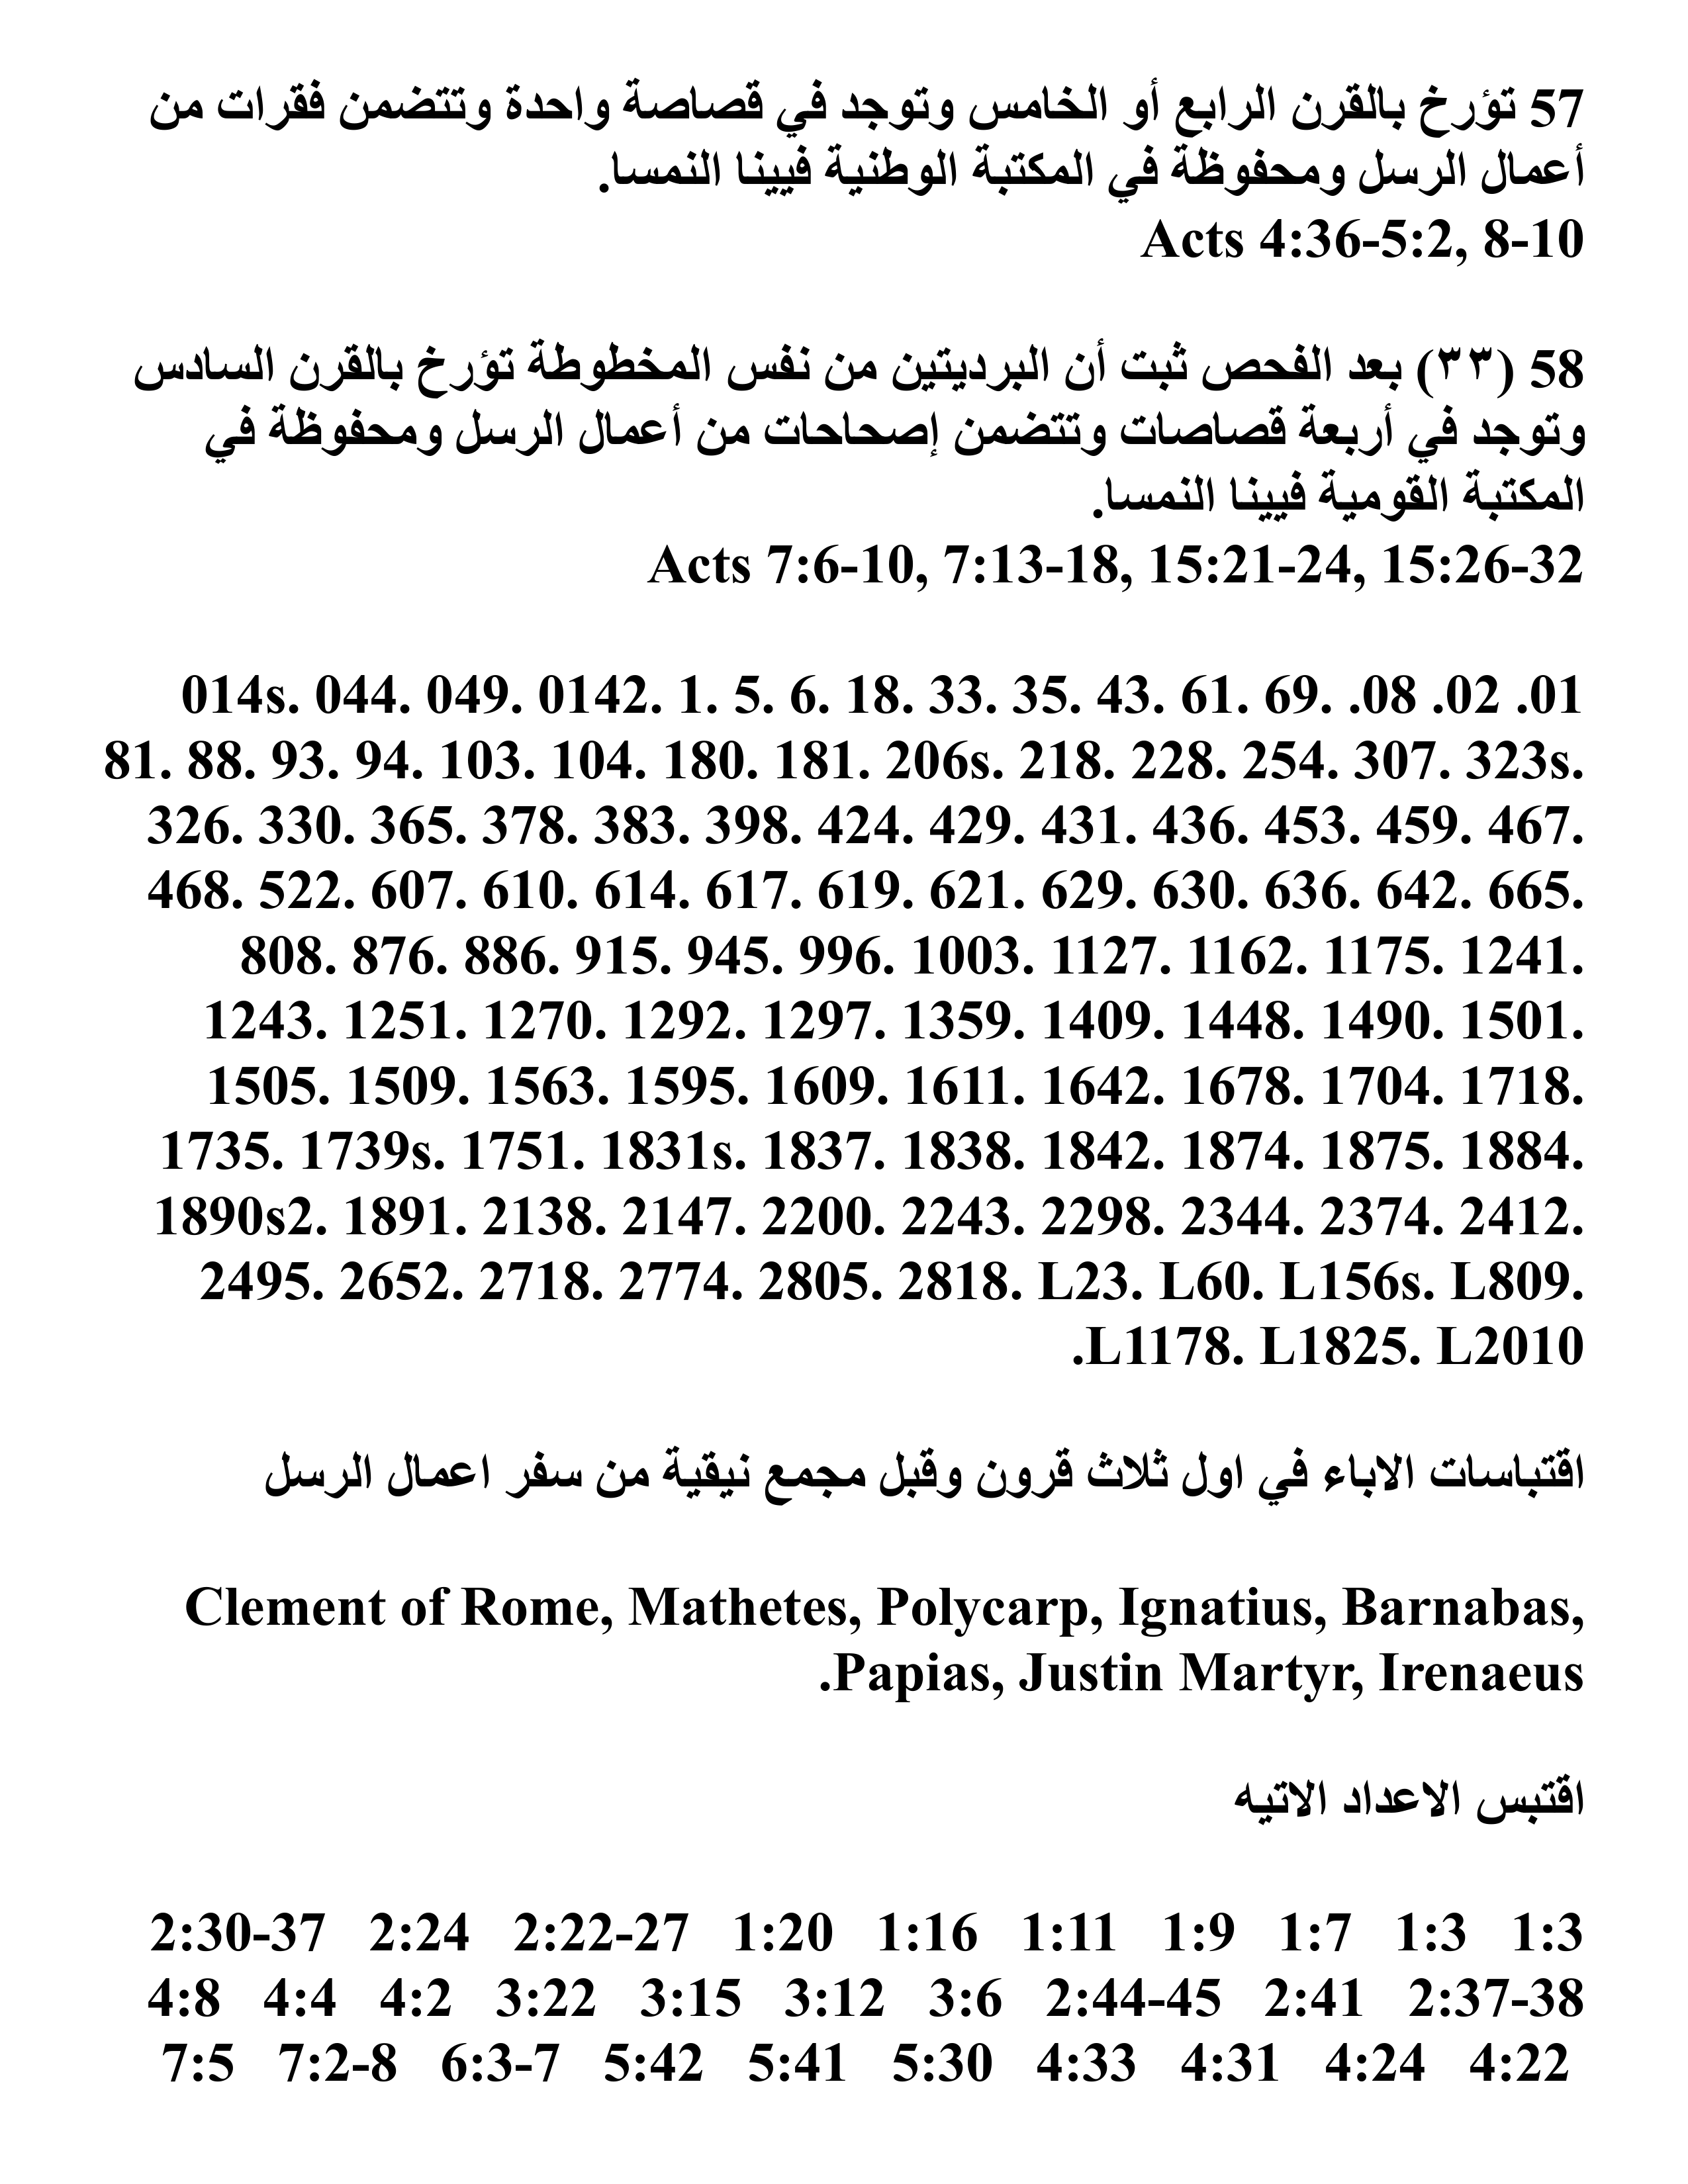 57 تؤرخ بالقرن الرابع أو الخامس وتوجد في قصاصة واحدة وتتضمن فقرات من
أعمال الرسل ومحفوظة في المكتبة الوطنية فيينا النمسا.
Acts 4:36-5:2, 8-10
58 (٣٣) بعد الفحص ثبت أن البرديتين من نفس المخطوطة تؤرخ بالقرن السادس
وتوجد في أربعة قصاصات وتتضمن إصحاحات من أعمال الرسل ومحفوظة في
المكتبة القومية فيينا النمسا.
Acts 7:6-10, 7:13-18, 15:21-24, 15:26-32
01. 02. 08. 014s. 044. 049. 0142. 1. 5. 6. 18. 33. 35. 43. 61. 69.
81. 88. 93. 94. 103. 104. 180. 181. 206s. 218. 228. 254. 307. 323s.
326. 330. 365. 378. 383. 398. 424. 429. 431. 436. 453. 459. 467.
468. 522. 607. 610. 614. 617. 619. 621. 629. 630. 636. 642. 665.
808. 876. 886. 915. 945. 996. 1003. 1127. 1162. 1175. 1241.
1243. 1251. 1270. 1292. 1297. 1359. 1409. 1448. 1490. 1501.
1505. 1509. 1563. 1595. 1609. 1611. 1642. 1678. 1704. 1718.
1735. 1739s. 1751. 1831s. 1837. 1838. 1842. 1874. 1875. 1884.
1890s2. 1891. 2138. 2147. 2200. 2243. 2298. 2344. 2374. 2412.
2495. 2652. 2718. 2774. 2805. 2818. L23. L60. L156s. L809.
L1178. L1825. L2010.
اقتباسات الاباء في اول ثلاث قرون وقبل مجمع نيقية من سفر اعمال الرسل
Clement of Rome, Mathetes, Polycarp, Ignatius, Barnabas,
Papias, Justin Martyr, Irenaeus.
اقتبس الاعداد الاتيه
1:3 1:3 1:7 1:9 1:11 1:16 1:20 2:22-27 2:24 2:30-37
2:37-38 2:41 2:44-45 3:6 3:12 3:15 3:22 4:2 4:4 4:8
4:22 4:24 4:31 4:33 5:30 5:41 5:42 6:3-7 7:2-8 7:5